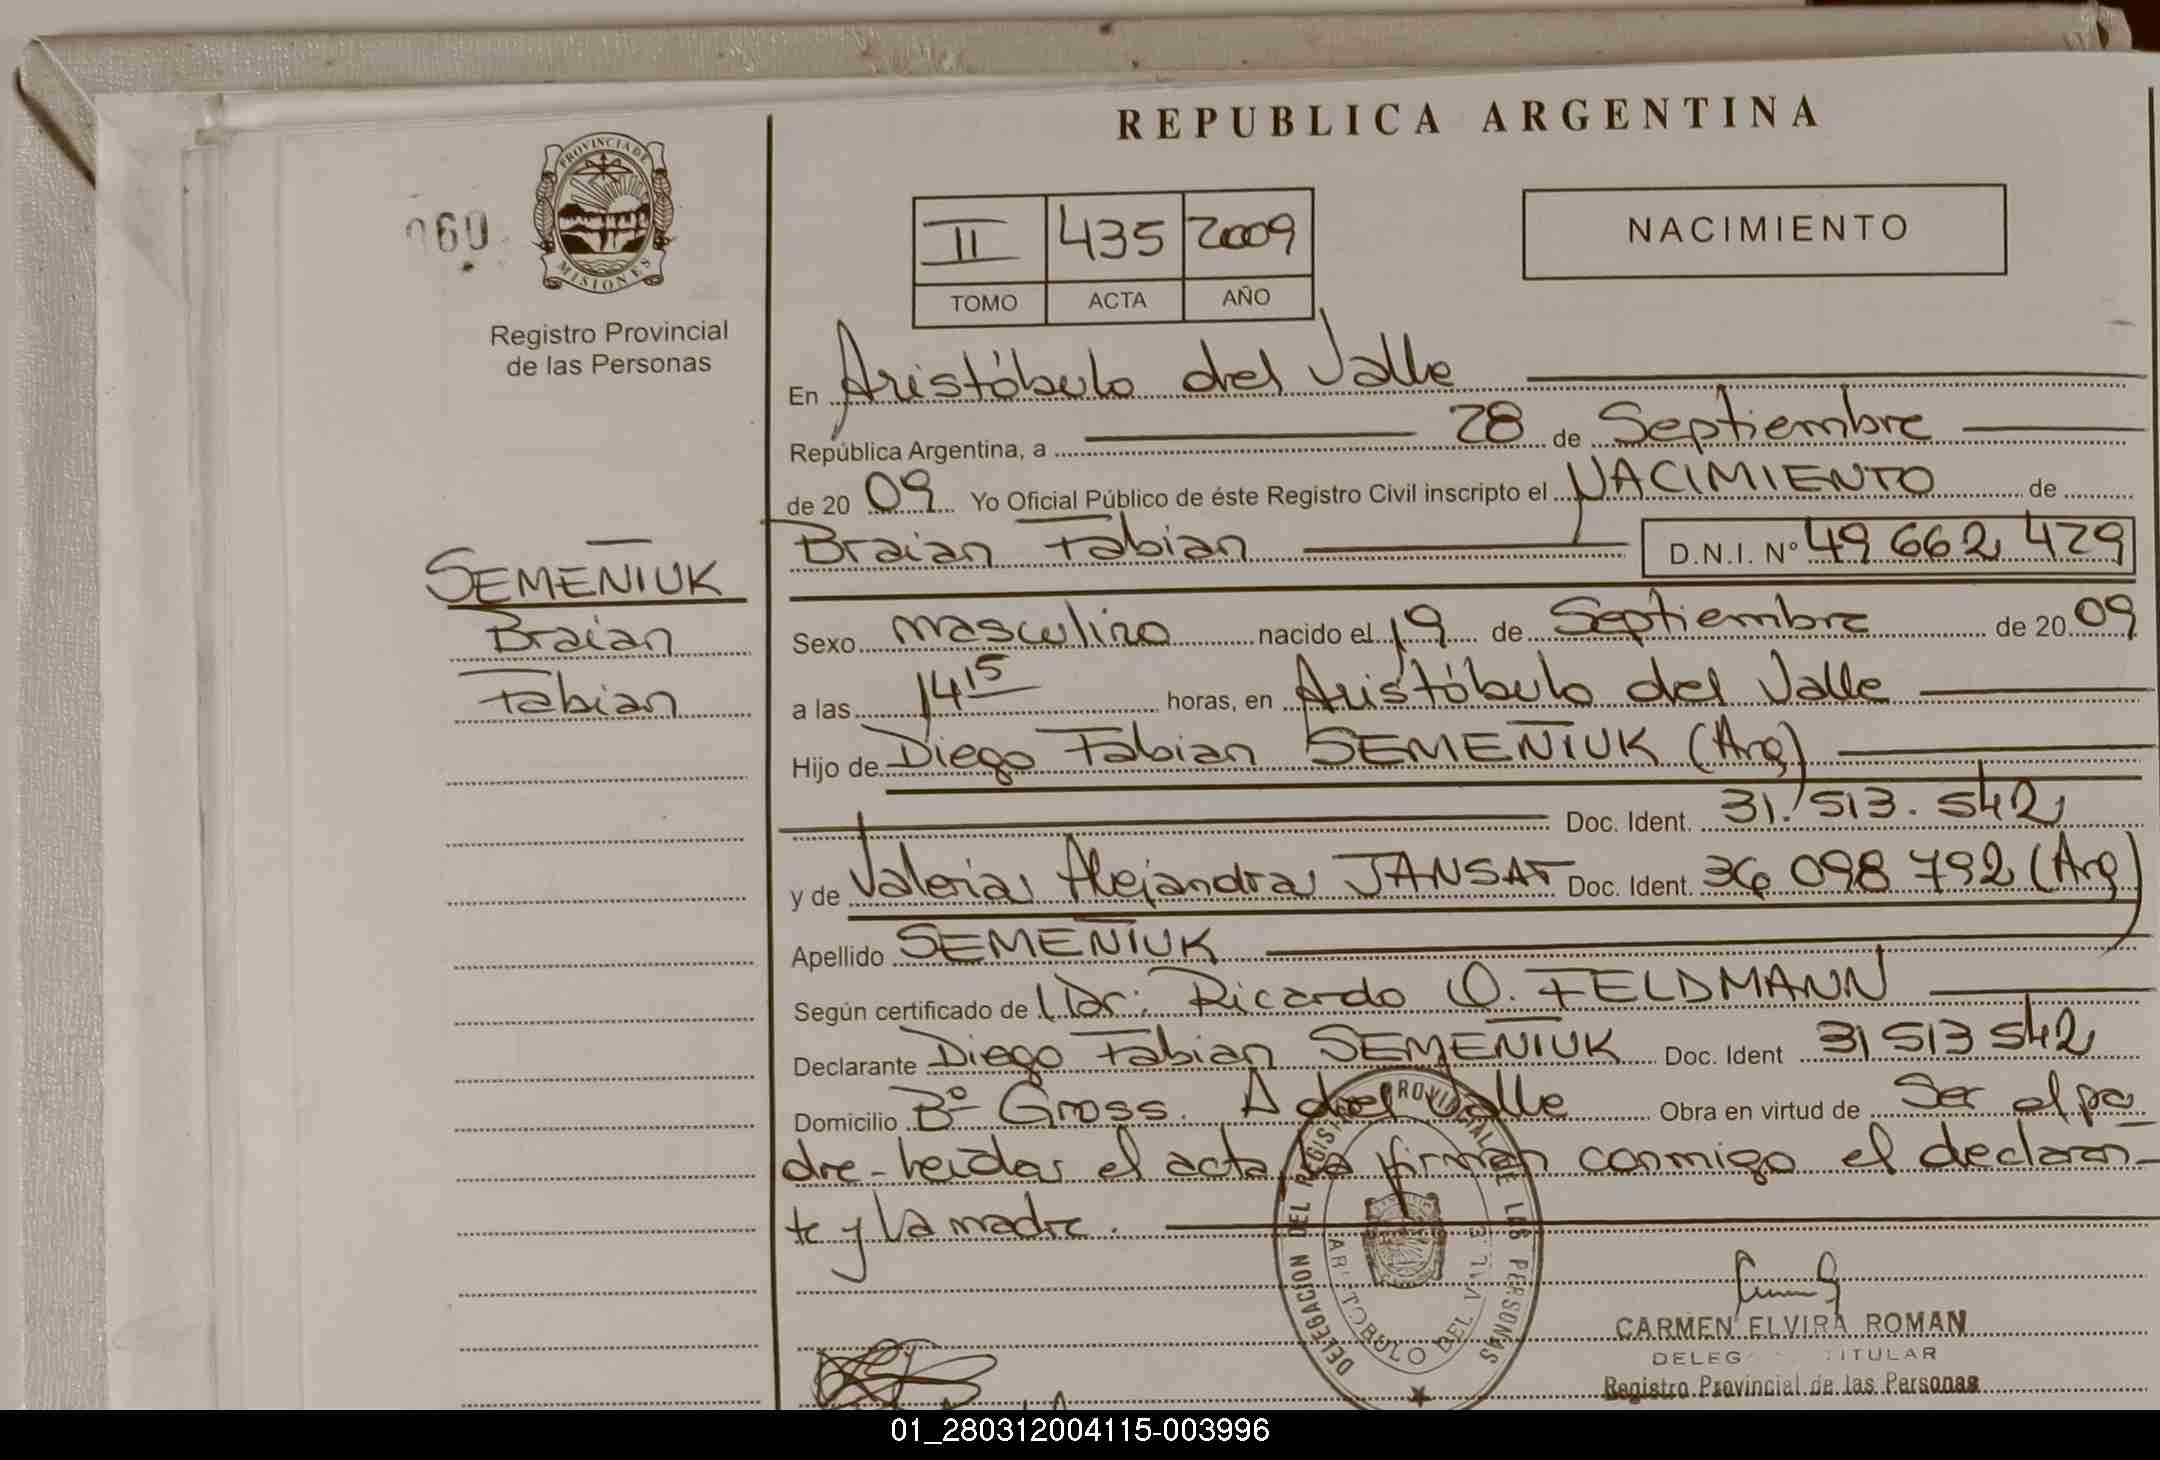 REPUBLICA ARGENTINA
060
PROVINCIA DE
MISIONES
Registro Provincial
de las Personas
II 435 2009
TOMO ACTA AÑO
NACIMIENTO
En Aristóbulo del Valle
República Argentina, a 28 de Septiembre
de 20 09 Yo Oficial Público de éste Registro Civil inscripto el NACIMIENTO de
Braian Fabian D.N.I. Nº 49 662 429
SEMENIUK
Braian
Fabian
Sexo masculino nacido el 19 de Septiembre de 20 09
a las 14 15 horas, en Aristóbulo del Valle
Hijo de Diego Fabian SEMENIUK (Arg)
Doc. Ident. 31.513.542
y de Valeria Alejandra JANSAT Doc. Ident. 36 098 792 (Arg)
Apellido SEMENIUK
Según certificado de Dr: Ricardo O. FELDMANN
Declarante Diego Fabian SEMENIUK Doc. Ident 31 513 542
Domicilio Bº Gross. A del Valle Obra en virtud de Ser el pa
dre - leida el acta, la firman conmigo el declaran-
te y la madre.
DELEGACION DEL REGISTRO PROVINCIAL DE LAS PERSONAS
ARISTOBULO DEL VALLE
CARMEN ELVIRA ROMAN
TITULAR
Registro Provincial de las Personas
01_280312004115-003996